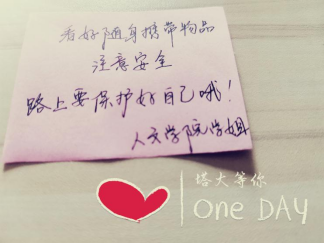 看好随身携带物品
注意安全
路上要保护好自己哦！
人文学院学姐
塔大等你
One DAY